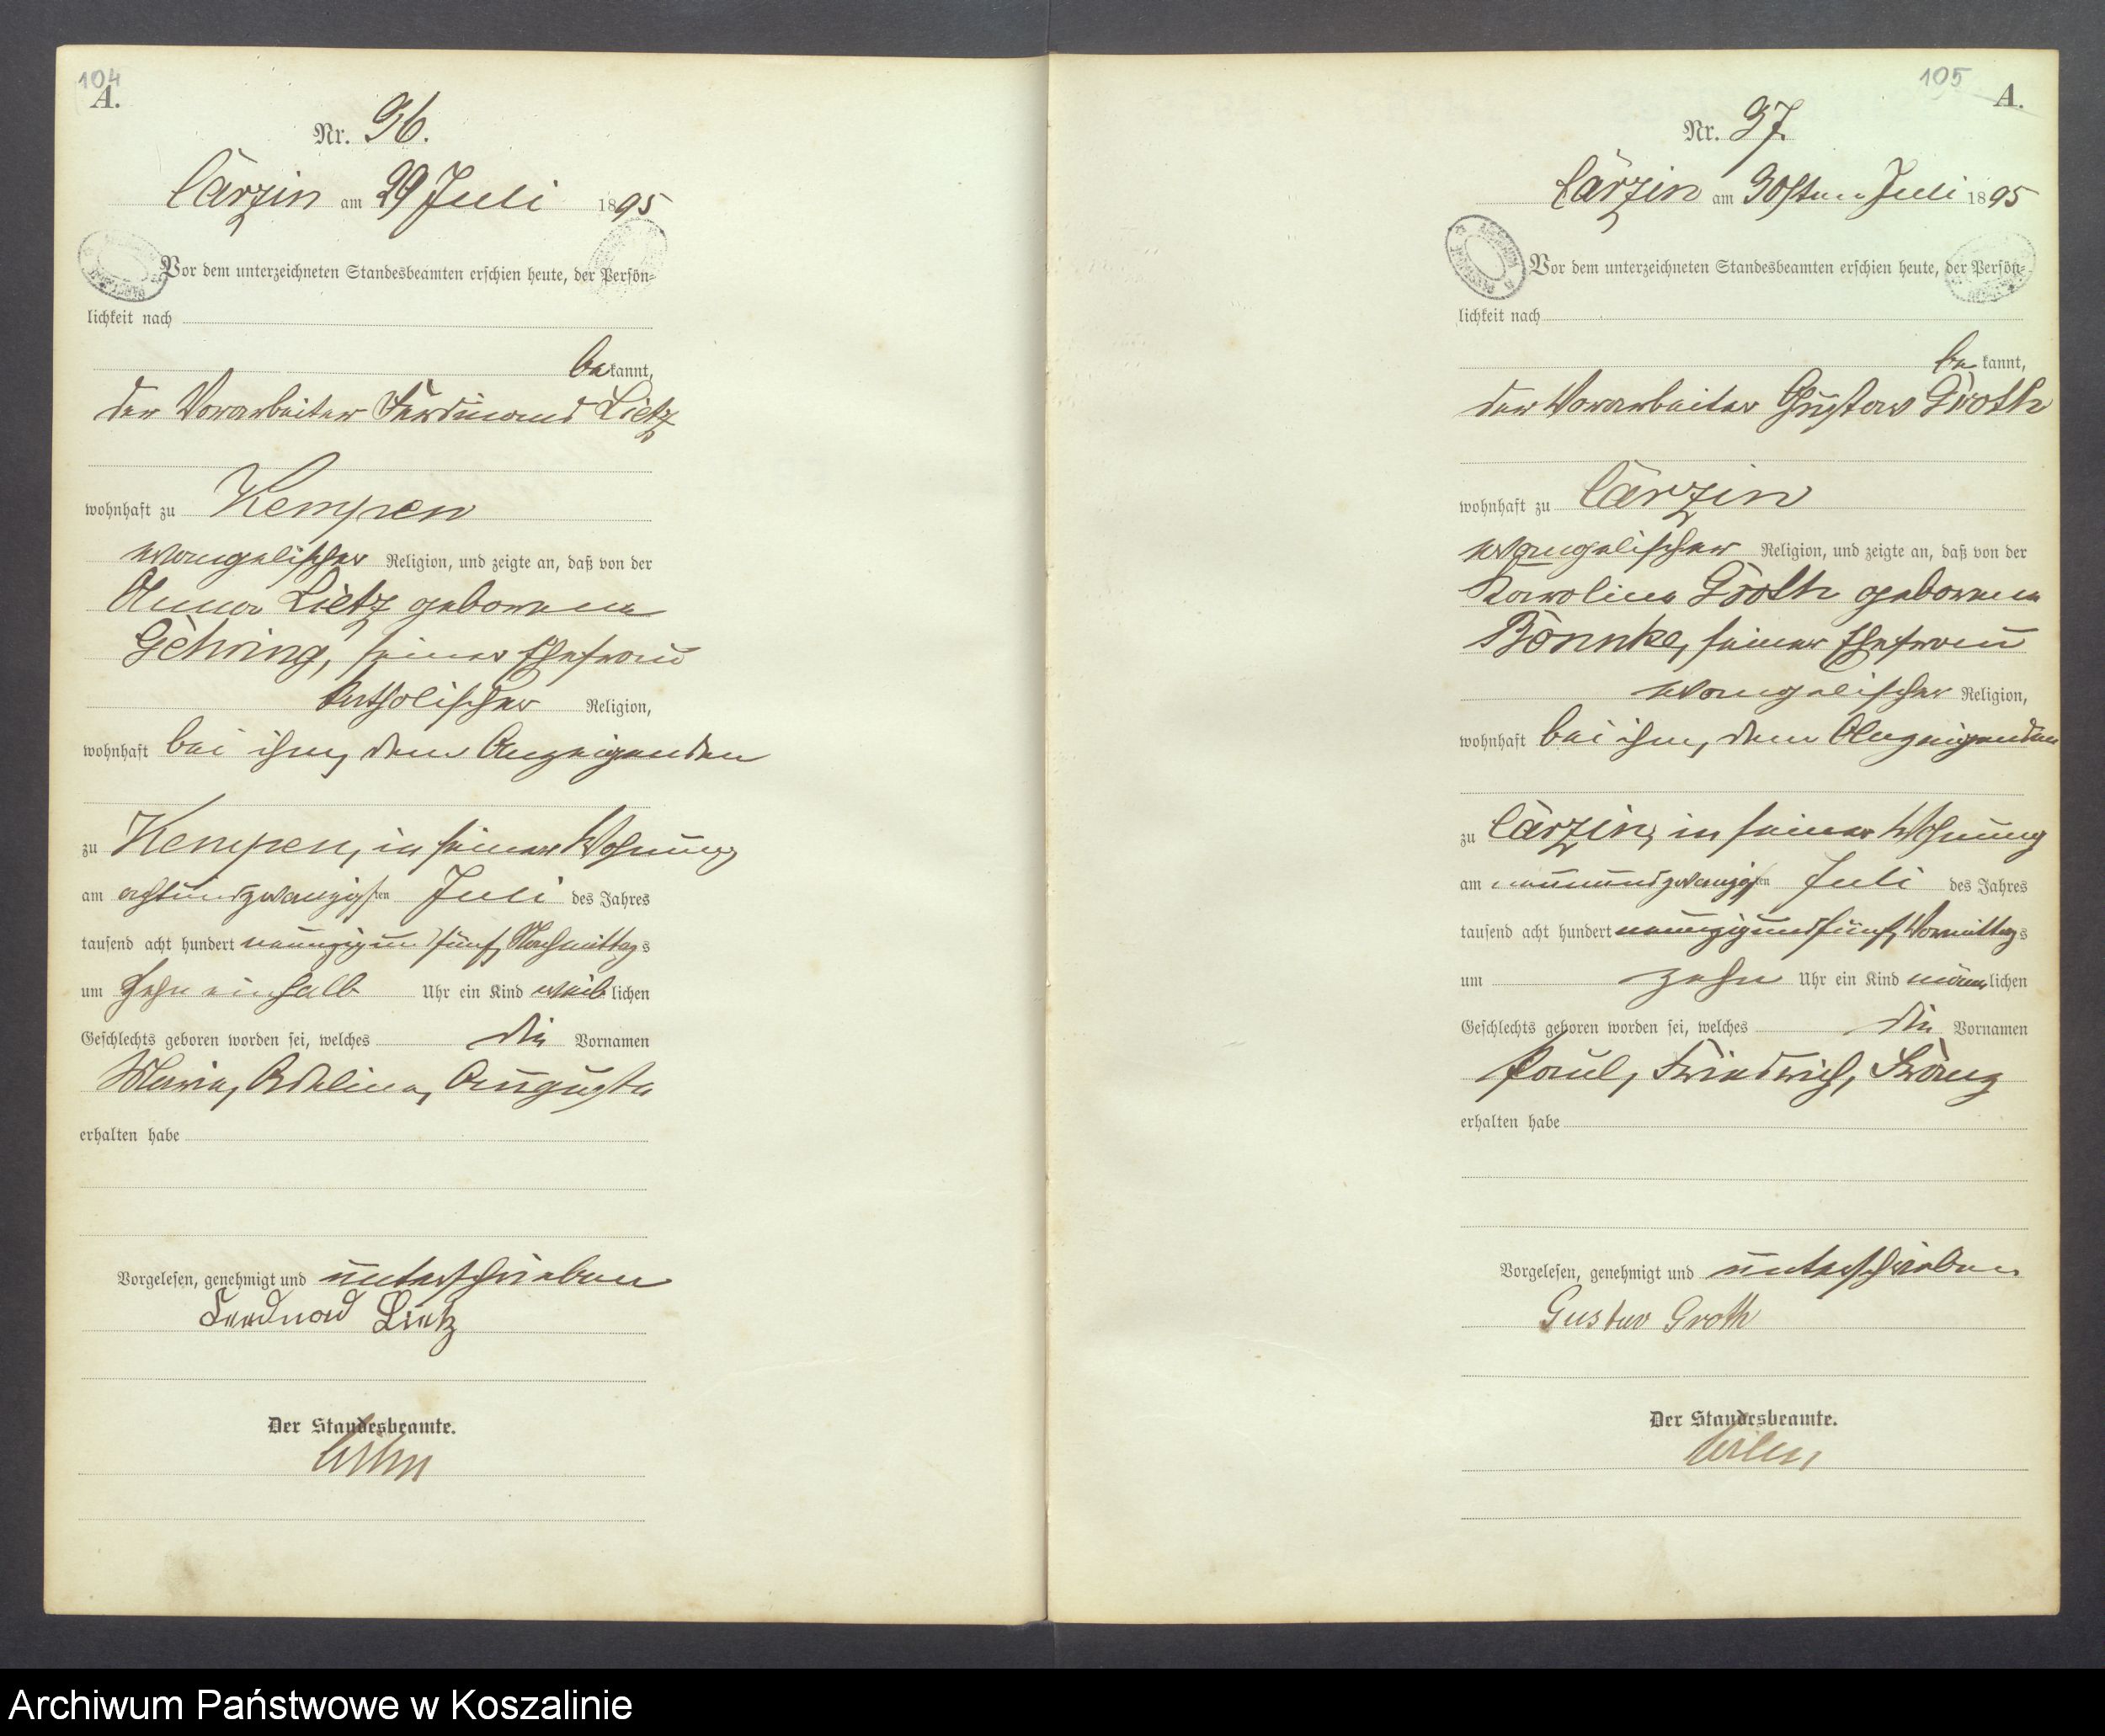 104
A.
Nr. 96.
Carzin am 29 Juli 1895
Vor dem unterzeichneten Standesbeamten erschien heute, der Persön=
lichkeit nach
bekannt,
der Vorarbeiter Ferdinand Lietz
wohnhaft zu Kempen
evangelischer Religion, und zeigte an, daß von der
Anna Lietz geborene
Gehring, seiner Ehefrau
katholischer Religion,
wohnhaft bei ihm, dem Anzeigenden
zu Kempen, in seiner Wohnung
am achtundzwanzigsten Juli des Jahres
tausend acht hundert neunzig und fünf, Nachmittags
um zehn einhalb Uhr ein Kind weiblichen
Geschlechts geboren worden sei, welches die Vornamen
Marie, Adeline, Auguste
erhalten habe
Vorgelesen, genehmigt und unterschrieben
Ferdinand Lietz
Der Standesbeamte.
105
A.
Nr. 97.
Carzin am 30sten Juli 1895
Vor dem unterzeichneten Standesbeamten erschien heute, der Persön=
lichkeit nach
bekannt,
der Vorarbeiter Gustav Groth
wohnhaft zu Carzin
evangelischer Religion, und zeigte an, daß von der
Karoline Groth geborene
Bönnke, seiner Ehefrau
evangelischer Religion,
wohnhaft bei ihm, dem Anzeigenden
zu Carzin, in seiner Wohnung
am neunundzwanzigsten Juli des Jahres
tausend acht hundert neunzig und fünf, Vormittags
um zehn Uhr ein Kind männlichen
Geschlechts geboren worden sei, welches die Vornamen
Paul, Friedrich, Franz
erhalten habe
Vorgelesen, genehmigt und unterschrieben
Gustav Groth
Der Standesbeamte.
Archiwum Państwowe w Koszalinie